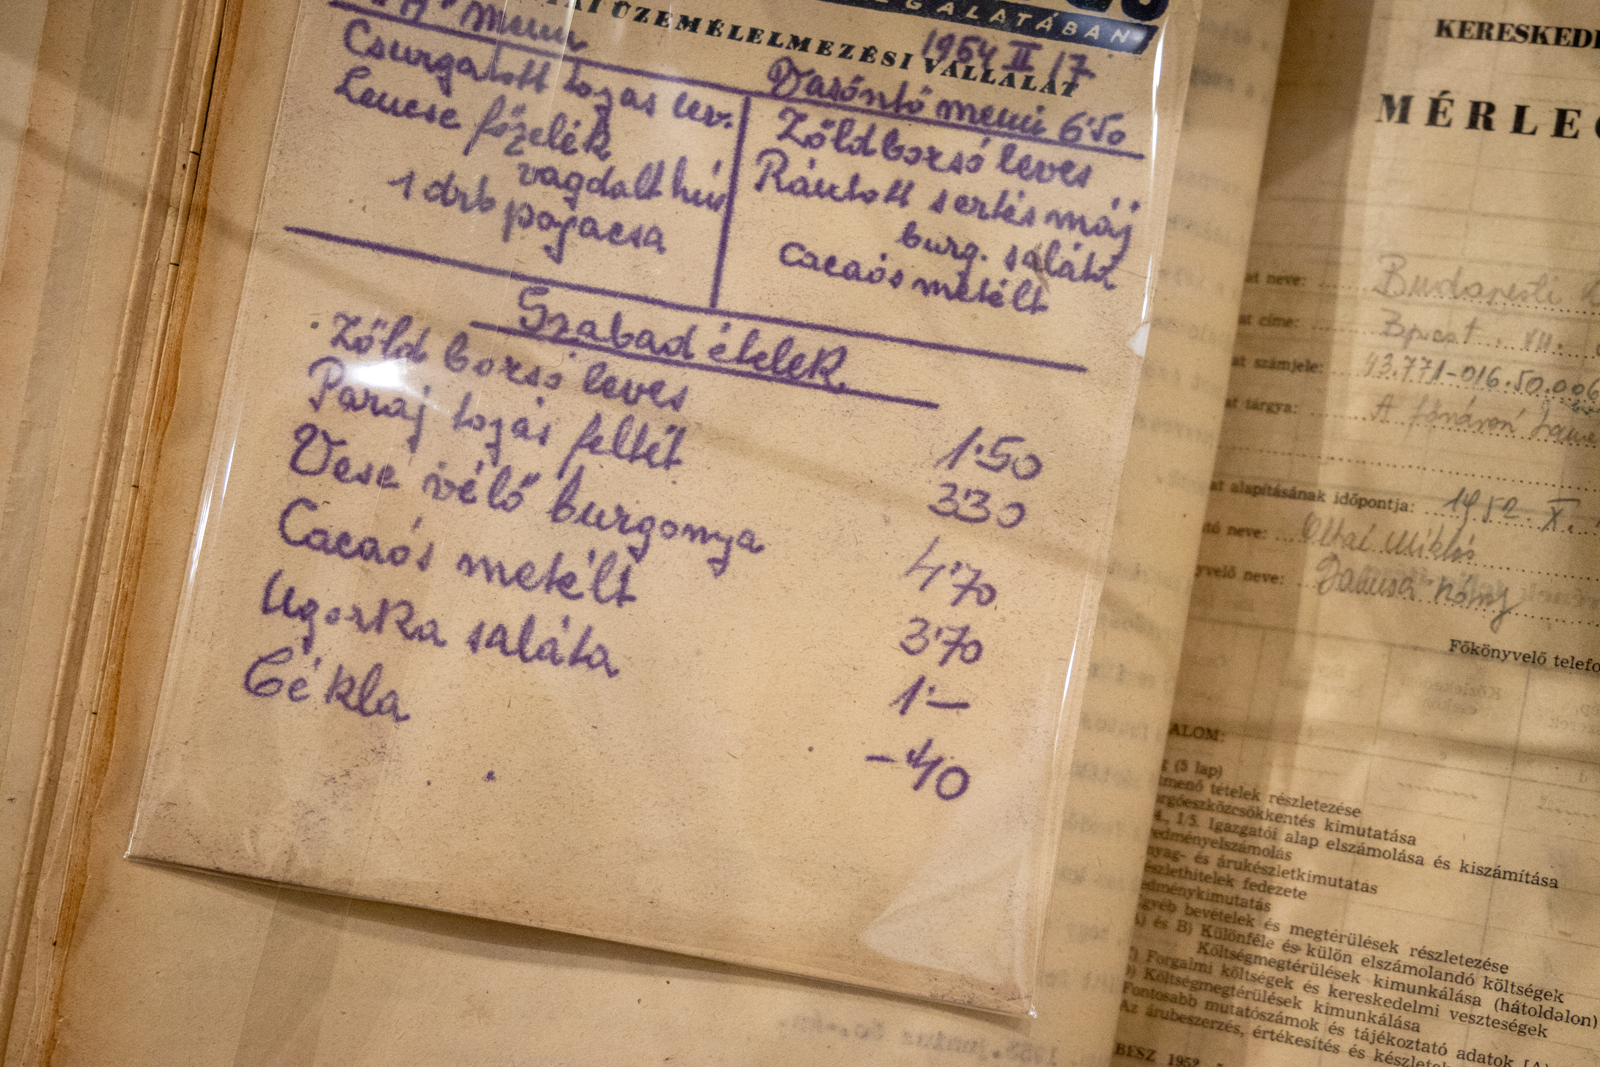 GALATÁBAN
ÜZEMÉLELMEZÉSI VÁLLALAT
1954 II 17
"A" menü
Csurgatott tojas lev.
Lencse főzelék
vagdalt hús
1 drb pogacsa
Vasöntő menü 6·50
Zöldborsó leves
Rántott sertés máj
burg. saláta
Cacaós metélt
Szabad ételek.
Zöld borsó leves 1·50
Paraj tojás feltét 3·30
Vese vélő burgonya 4·70
Cacaós metélt 3·70
Ugorka saláta 1·—
Cékla —·40
KERESKED
MÉRLE
at neve: Budapesti
at címe: Bpest. VII.
at számjele: 43.771-016.50.006
at tárgya: A fővárosi
at alapításának időpontja: 1952. X.
neve: Oltai Miklós
yvelő neve:
Főkönyvelő telefo
ALOM:
(5 lap)
menő tételek részletezése
rgóeszközcsökkentés kimutatása
4., 1/5. Igazgatói alap elszámolása és kiszámítása
edményelszámolás
nyag- és árukészletkimutatás
észlethitelek fedezete
edménykimutatás
gyéb bevételek és megtérülések részletezése
A) és B) Különféle és külön elszámolandó költségek
Költségmegtérülések kimunkálása (hátoldalon)
) Forgalmi költségek és kereskedelmi veszteségek
) Költségmegtérülések kimunkálása
Fontosabb mutatószámok és tájékoztató adatok
Az árubeszerzés, értékesítés és készlet
BESZ 1952